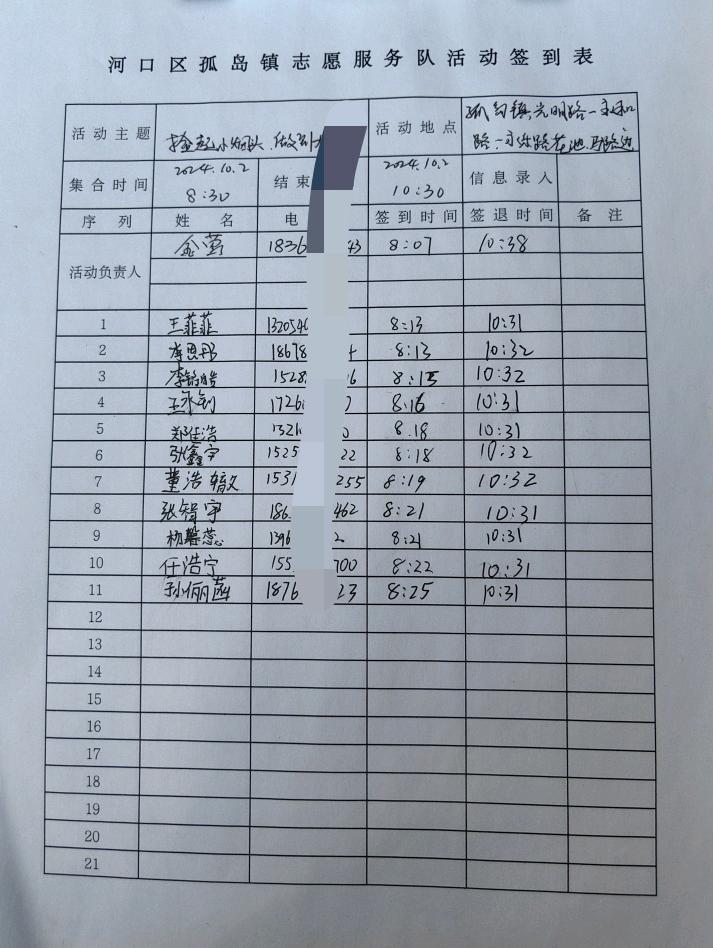 河口区孤岛镇志愿服务队活动签到表
活动主题 捡起小烟头.做 活动地点 孤岛镇光明路一永和
路一
集合时间 2024.10.2 结束 2024.10.2 信息录人
8:30 10:30
序列 姓名 电 签到时间 签退时间 备注
活动负责人 金莺 1836 43 8:07 10:38
1 王菲菲 132054 8:13 10:31
2 18678 8:13 10:32
3 1528 16 8:15 10:32
4 王永钊 1726 8:16 10:31
5 郑佳浩 1321 0 8.18 10:31
6 张鑫宇 1525 22 8:18 10:32
7 董浩 1531 255 8:19 10:32
8 张智宇 186 462 8:21 10:31
9 杨馨蕊 1396 2 8:21 10:31
10 任浩宁 155 700 8:22 10:31
11 孙俪菡 1876 23 8:25 10:31
12
13
14
15
16
17
18
19
20
21